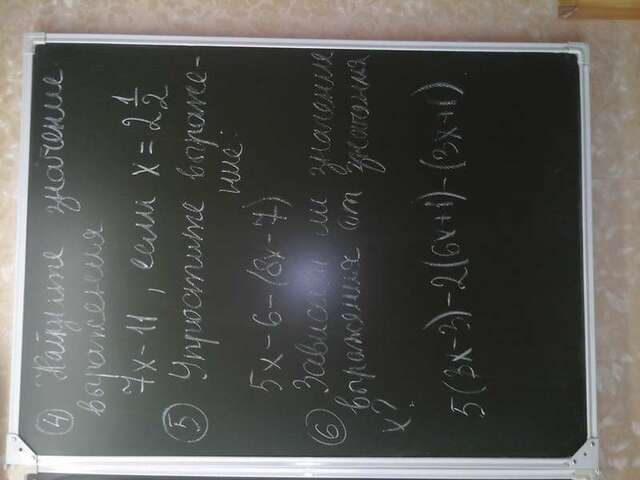 ④ Найдите значение
выражения
7x - 11, если x = 2 1/2
⑤ Упростите выраже-
ние:
5x - 6 - (8x - 7)
⑥ Зависит ли значение
выражения от значения
x?
5(3x - 3) - 2(6x + 1) - (3x + 1)